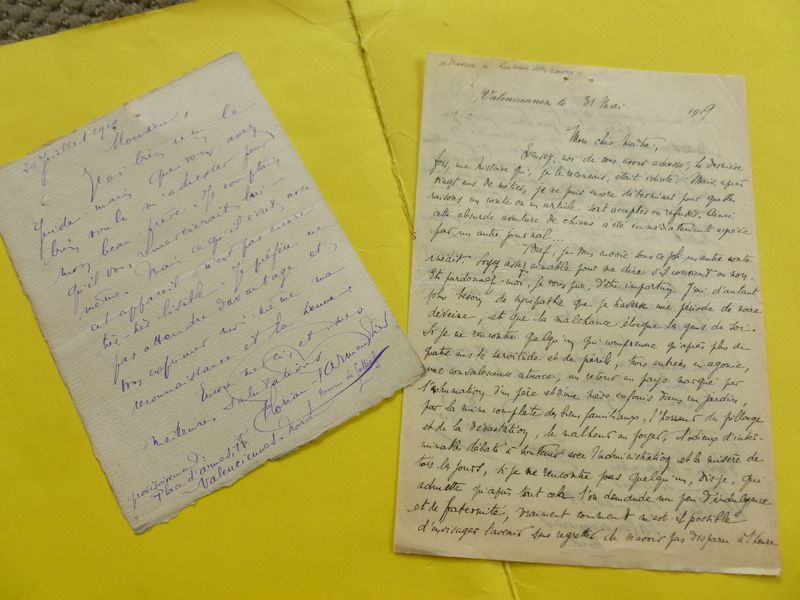 20 Juillet 1919
Monsieur,
J'ai bien reçu le
guide mais que vous avez
bien voulu m'adresser pour
mon beau frère. Je comptais
qu'il vous remercierait lui-
même. Mais ce qu'il écrit, avec
cet appareil n'est pas encore
très-très lisible. Je préfère ne
pas attendre davantage et
vous exprimer moi-même ma
reconnaissance et la bonne.
Encore merci et mes
meilleures salutations
Florian Parmentier
Homme de lettres
provisoirement :
Place d'armes, 17
Valenciennes. Nord
adressée à Lucien Descaves -
Valenciennes, le 31 Mai 1919
Mon cher Maître,
Excusez-moi de vous avoir adressé, la dernière
fois, une histoire qui, je le reconnais, était idiote. Mais, après
vingt ans de métier, je ne puis encore déterminer pour quelles
raisons un conte ou un article sont acceptés ou refusés. Ainsi
cette absurde aventure de chiens a été immédiatement agréée
par un autre journal...
Bref, je vous envoie sous ce pli un autre conte
inédit. Soyez assez aimable pour me dire s'il convient ou non.
Et pardonnez-moi, je vous prie, d'être importun. J'ai d'autant
plus besoin de sympathie que je traverse une période de noire
déveine, et que la malchance éloigne les gens de soi.
Si je ne rencontre quelqu'un qui comprenne qu'après plus de
quatre ans de servitude et de péril, trois entrées en agonie,
une convalescence atroce, un retour au pays marqué par
l'exhumation d'un père et d'une mère enfouis dans un jardin,
par la ruine complète des biens familiaux, l'horreur du pillage
et de la dévastation, le malheur au foyer, l'odieux d'inter-
minables débats à soutenir avec l'administration et la misère de
tous les jours, si je ne rencontre pas quelqu'un, dis-je, qui
admette qu'après tout cela l'on demande un peu d'indulgence
et de fraternité, vraiment comment m'est-il possible
d'envisager l'avenir sans regretter de n'avoir pas disparu à l'heure